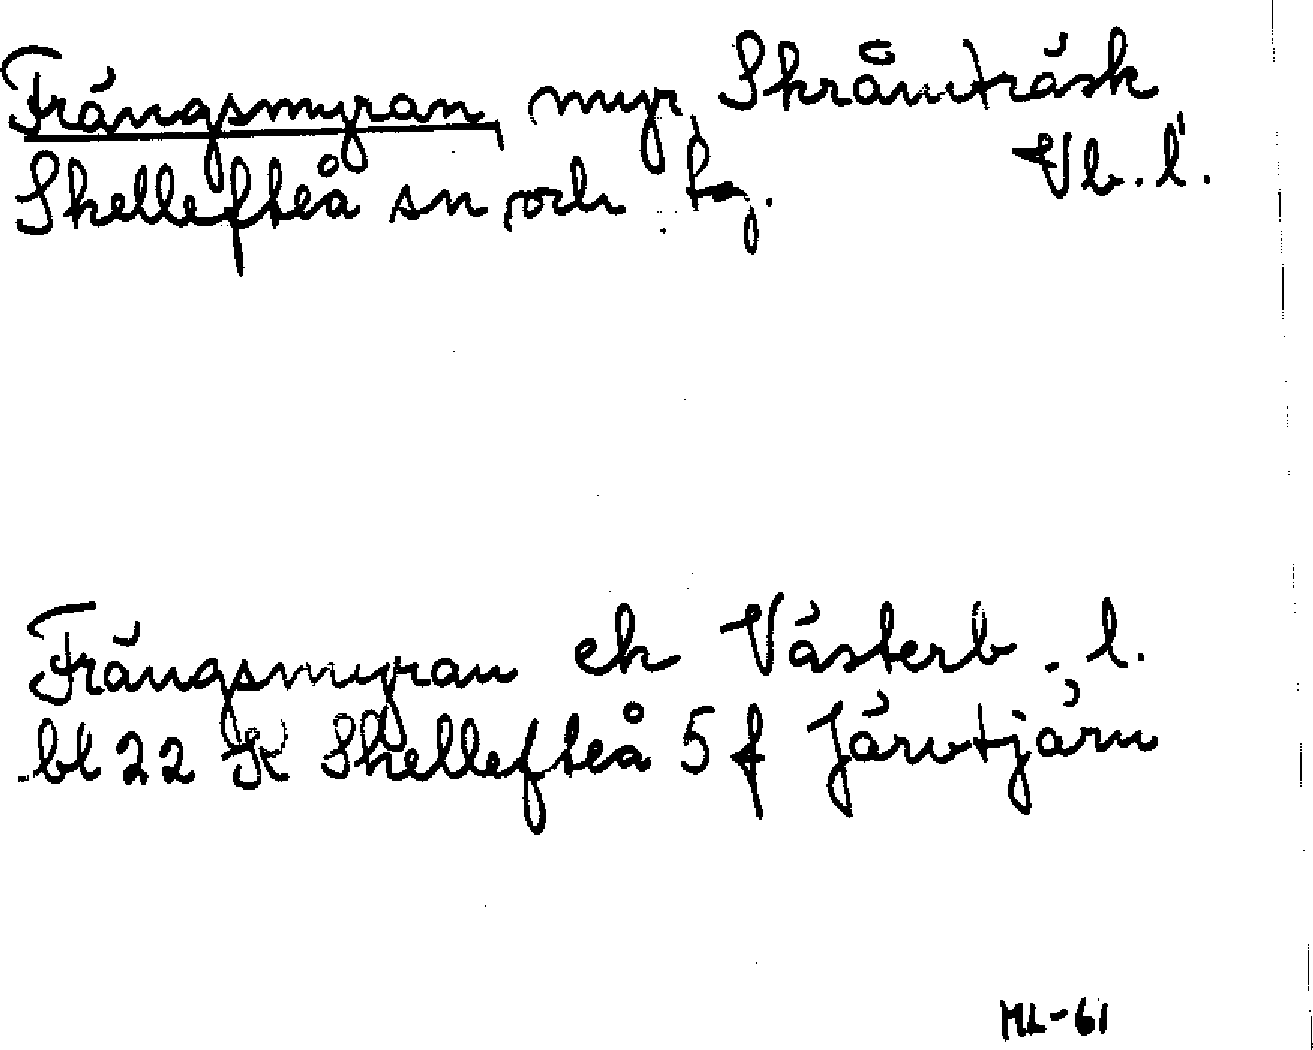 Frängsmyran, myr, Skråmträsk
Skellefteå sn och tg. Vb. l.
Frängsmyran ek Västerb. l.
bl 22 K Skellefteå 5 f Järvtjärn
ML-61